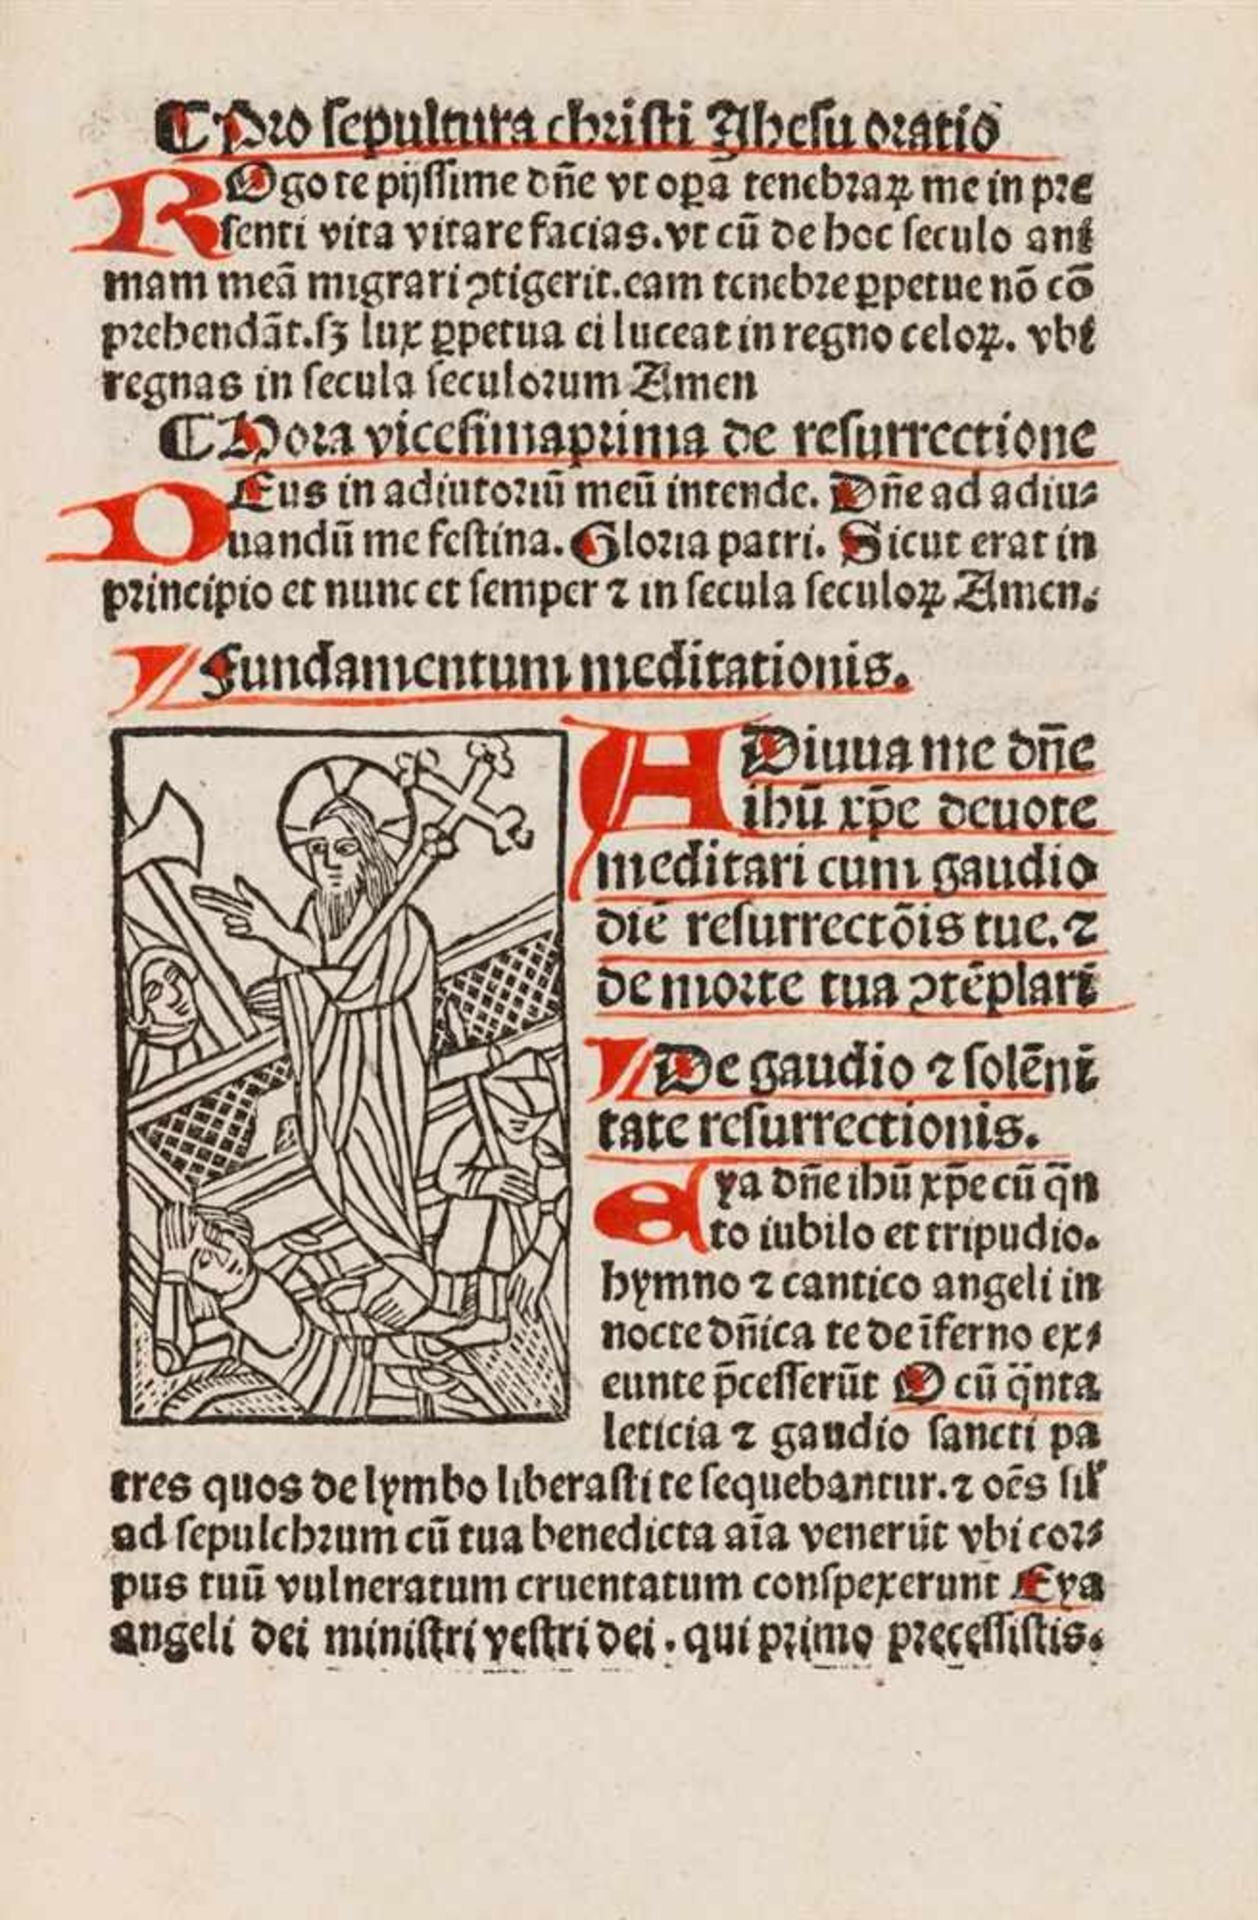 ¶ Pro sepultura christi Jhesu oratio
ROgo te pijssime dñe vt oꝑa tenebraꝝ me in pre
senti vita vitare facias. vt cū de hoc seculo ani
mam meā migrari ꝯtigerit. eam tenebre ꝑpetue nō cō
prehendāt. sꝫ lux ꝑpetua ei luceat in regno celoꝝ. vbi
regnas in secula seculorum Amen
¶ Hora vicesimaprima de resurrectione
DEus in adiutoriū meū intende. Dñe ad adiu⸗
uandū me festina. Gloria patri. Sicut erat in
principio et nunc et semper ⁊ in secula seculoꝝ Amen.
Fundamentum meditationis.
ADiuua me dñe
ihū xp̄e deuote
meditari cum gaudio
diē resurrectōis tue. ⁊
de morte tua ꝯtēplari
De gaudio ⁊ solēni
tate resurrectionis.
Eya dñe ihū xp̄e cū q̄n
to iubilo et tripudio.
hymno ⁊ cantico angeli in
nocte dñica te de īferno ex⸗
eunte p̄cesserūt O cū q̄nta
leticia ⁊ gaudio sancti pa
tres quos de lymbo liberasti te sequebantur. ⁊ oēs sil'
ad sepulchrum cū tua benedicta aīa venerūt vbi cor⸗
pus tuū vulneratum cruentatum conspexerunt Eya
angeli dei ministri vestri dei. qui primo precessistis.